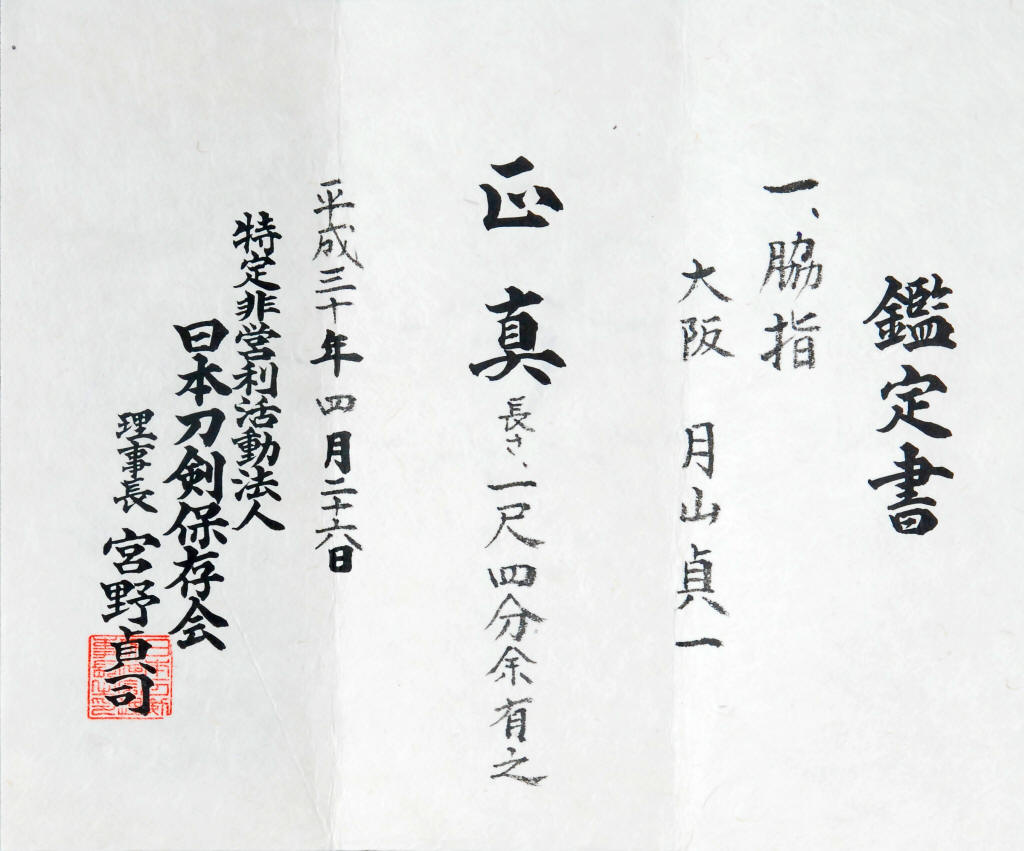 鑑定書
一、脇指
大阪 月山貞一
正真 長さ、一尺四分余有之
平成三十年四月二十六日
特定非営利活動法人
日本刀剣保存会
理事長 宮野貞司